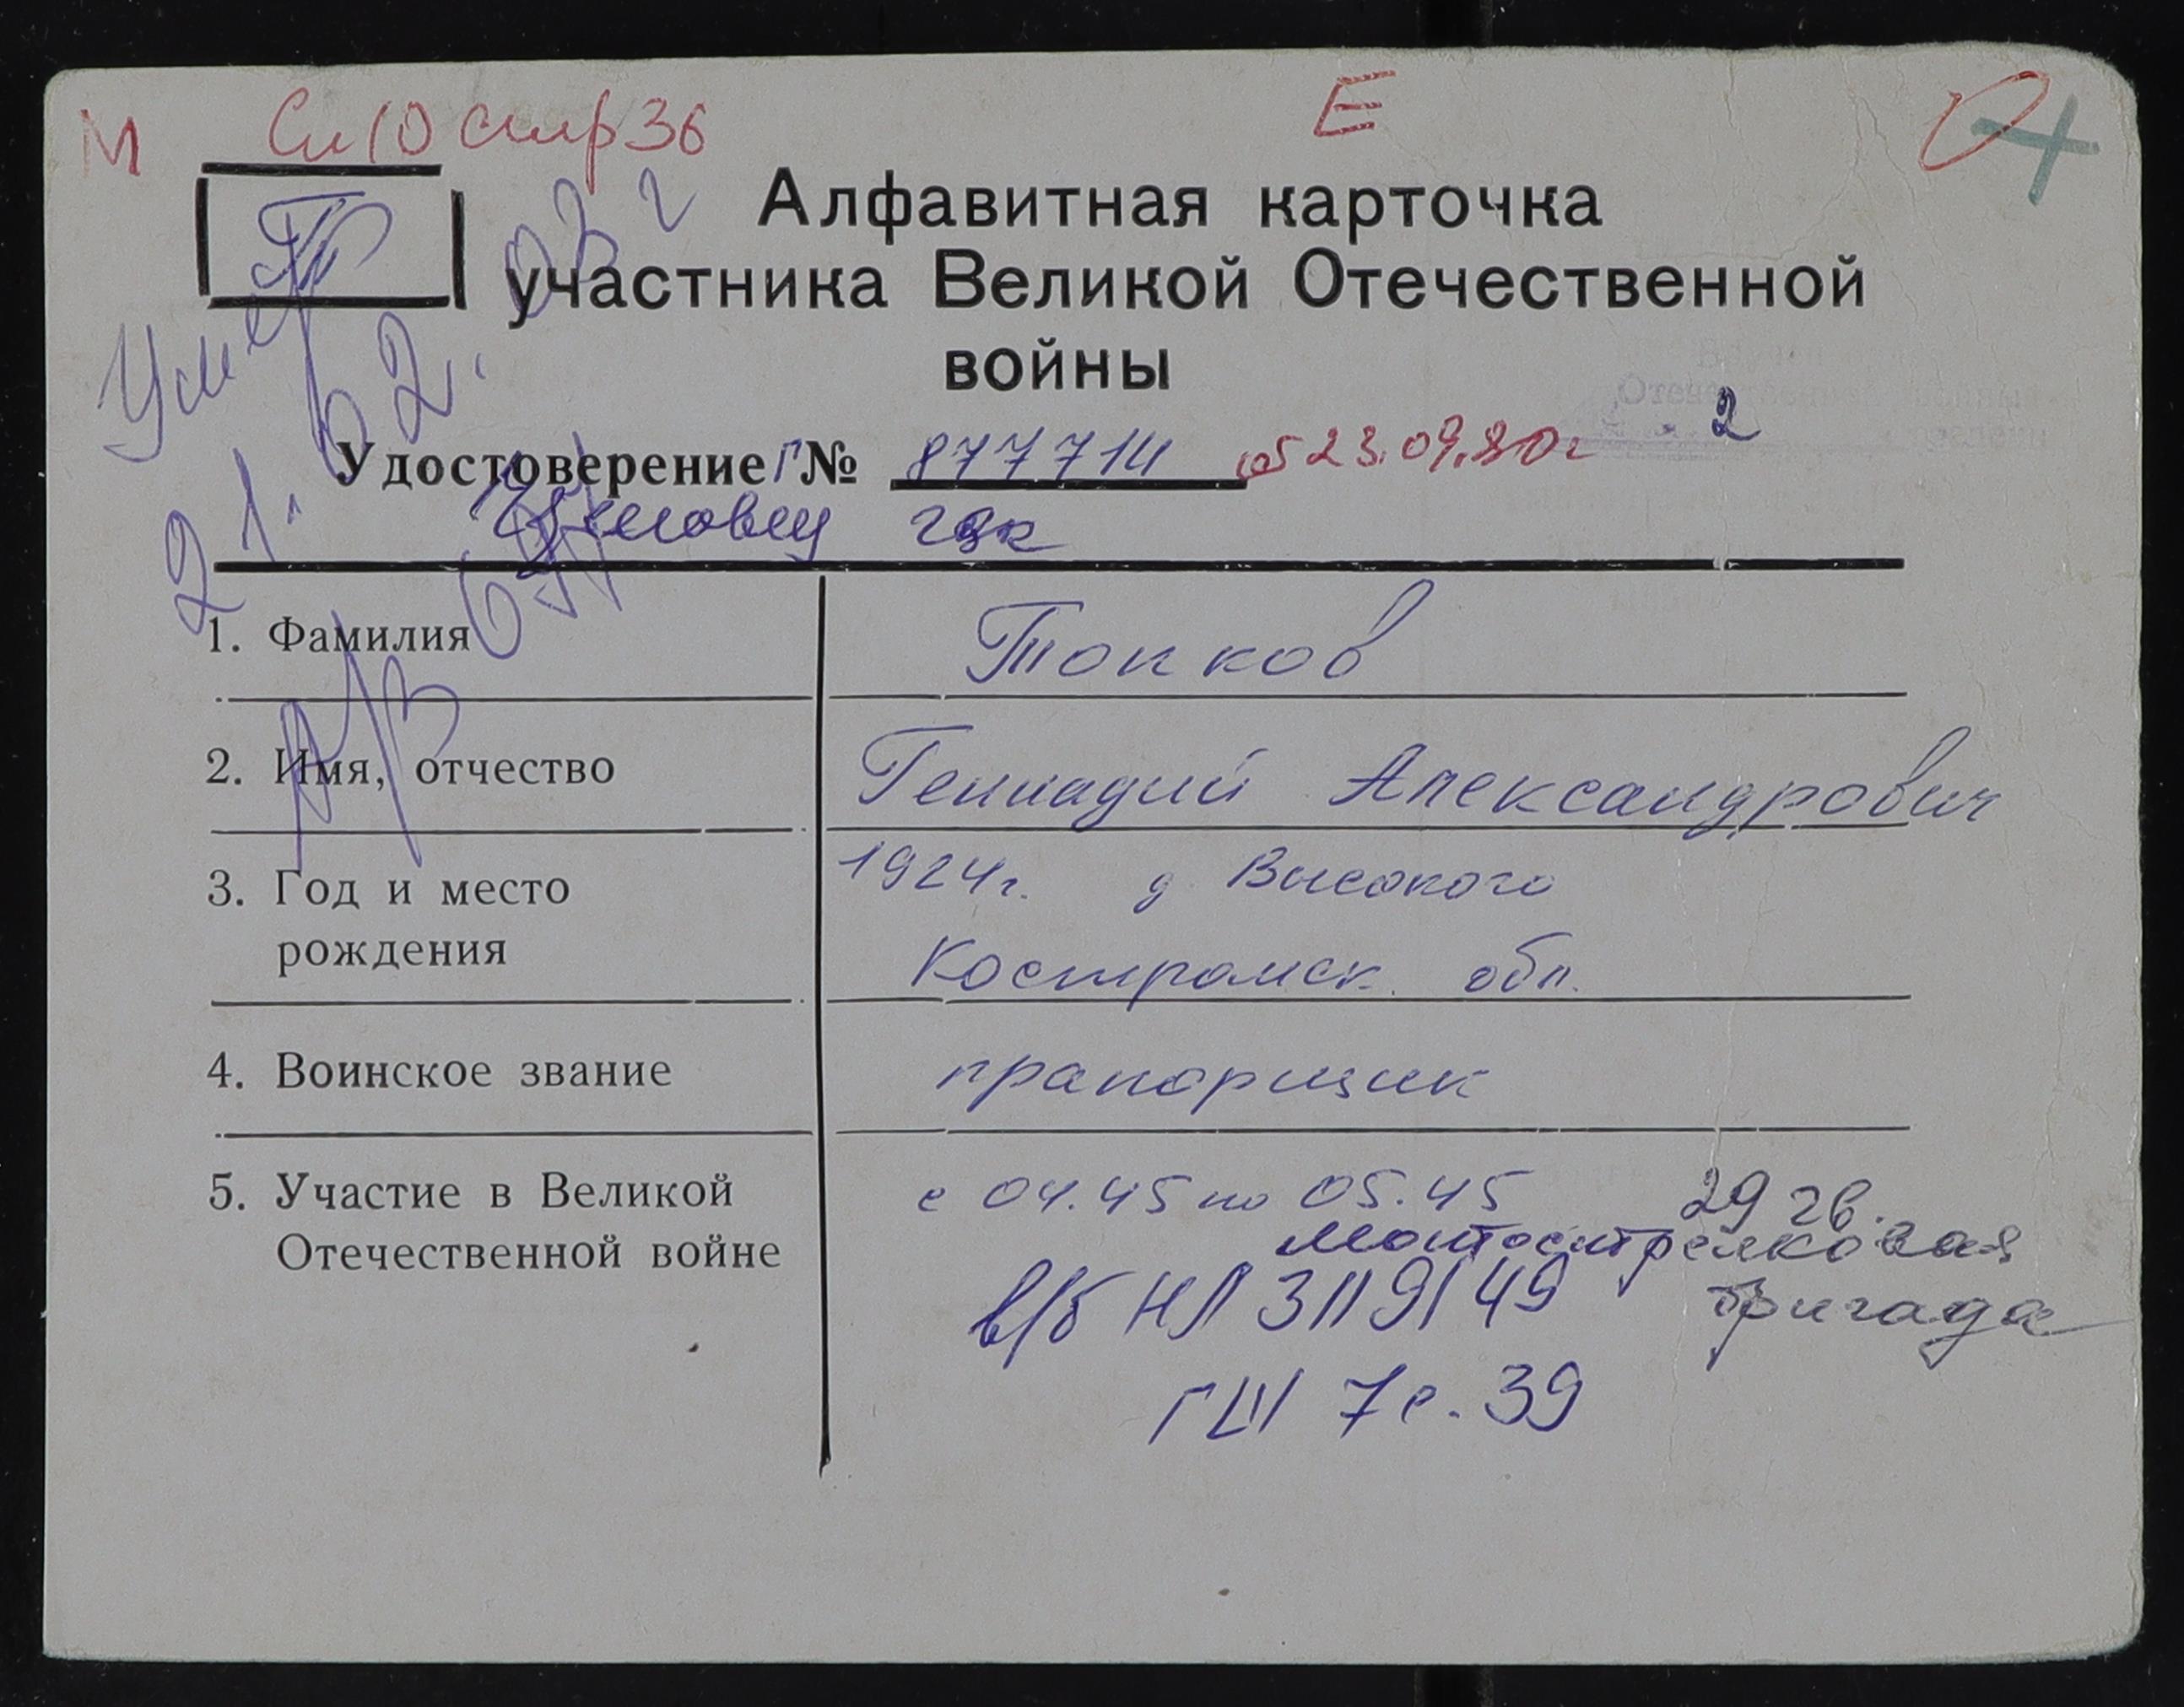 М Сп 10 стр 36 Е
Т
Алфавитная карточка
участника Великой Отечественной
войны
Умер 21.02.03 г
Удостоверение Г № 877714 от 23.09.80г 2
1. Фамилия Топков
2. Имя, отчество Геннадий Александрович
3. Год и место 1924г. д. Высокого
рождения Костромск. обл.
4. Воинское звание прапорщик
5. Участие в Великой с 04.45 по 05.45 29 гв.
Отечественной войне мотострелковая
в/б НЛ 3119149 бригада
ГШ 7 с. 39